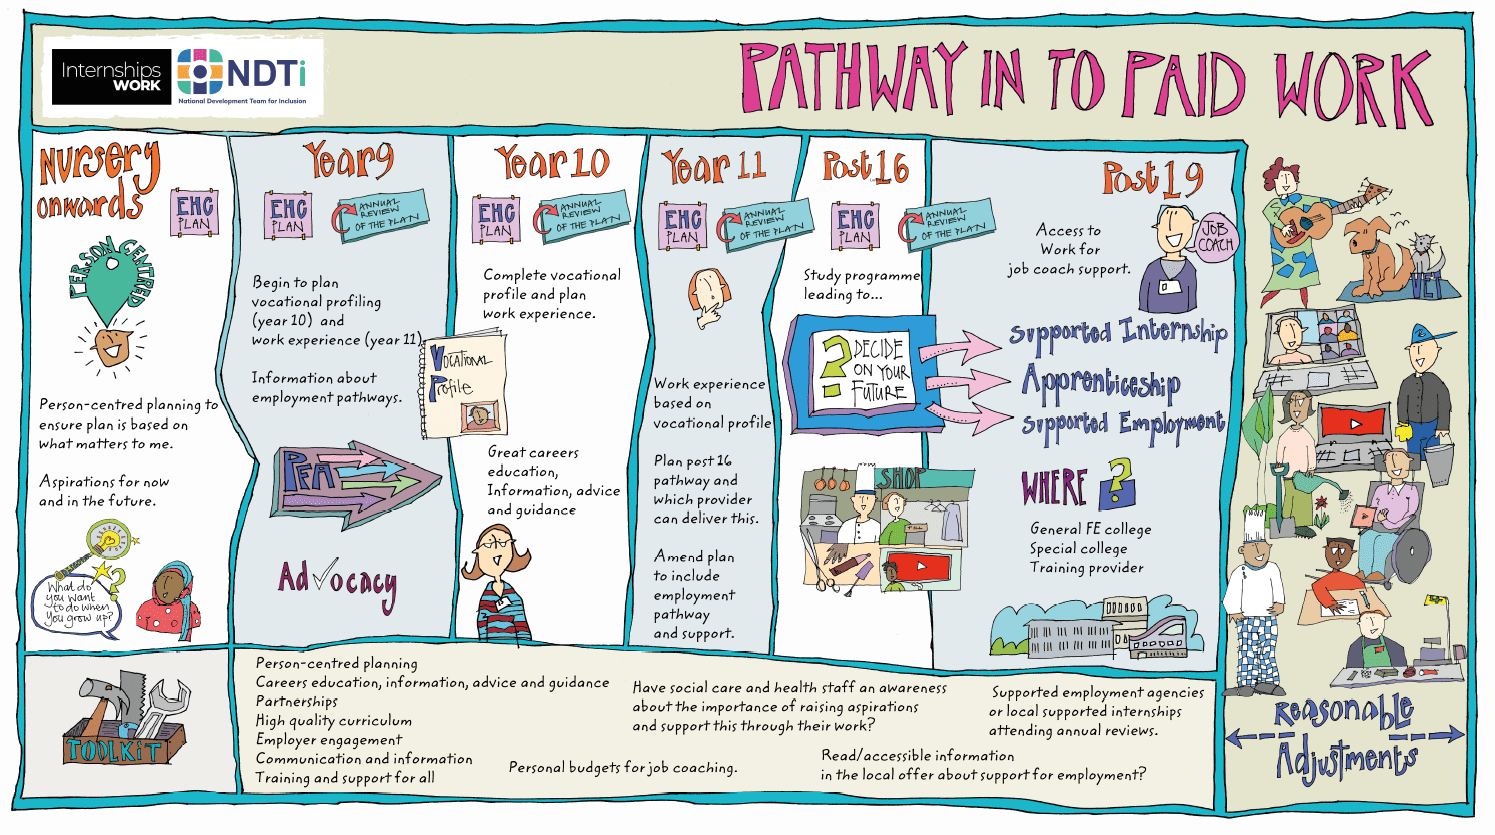 Internships
WORK
NDTi
National Development Team for Inclusion
PATHWAY IN TO PAID WORK
NURSERY
onwards
EHC
PLAN
PERSON CENTRED
Person-centred planning to
ensure plan is based on
what matters to me.
Aspirations for now
and in the future.
What do
you want
to do when
you grow up?
Year 9
EHC
PLAN
ANNUAL
REVIEW
OF THE PLAN
Begin to plan
vocational profiling
(year 10) and
work experience (year 11)
Information about
employment pathways.
PFA
Advocacy
Year 10
EHC
PLAN
ANNUAL
REVIEW
OF THE PLAN
Complete vocational
profile and plan
work experience.
Vocational
Profile
Great careers
education,
Information, advice
and guidance
Year 11
EHC
PLAN
ANNUAL
REVIEW
OF THE PLAN
Work experience
based on
vocational profile
Plan post 16
pathway and
which provider
can deliver this.
Amend plan
to include
employment
pathway
and support.
Post 16
EHC
PLAN
ANNUAL
REVIEW
OF THE PLAN
Study programme
leading to...
? DECIDE
ON YOUR
FUTURE
SHOP
Post 19
Access to
Work for
job coach support.
JOB
COACH
Supported Internship
Apprenticeship
Supported Employment
WHERE ?
General FE college
Special college
Training provider
VET
Reasonable
Adjustments
TOOLKIT
Person-centred planning
Careers education, information, advice and guidance
Partnerships
High quality curriculum
Employer engagement
Communication and information
Training and support for all
Personal budgets for job coaching.
Have social care and health staff an awareness
about the importance of raising aspirations
and support this through their work?
Read/accessible information
in the local offer about support for employment?
Supported employment agencies
or local supported internships
attending annual reviews.